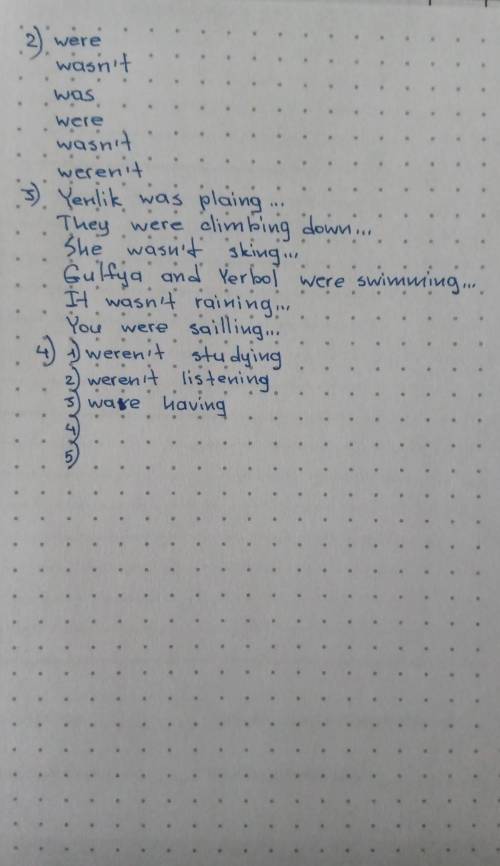 2) were
wasn't
was
were
wasn't
weren't
3) Yenlik was plaing...
They were climbing down...
She wasn't sking...
Gulfya and Yerbol were swimming...
It wasn't raining...
You were sailling...
4) 1) weren't studying
2) weren't listening
3) ware having
4)
5)